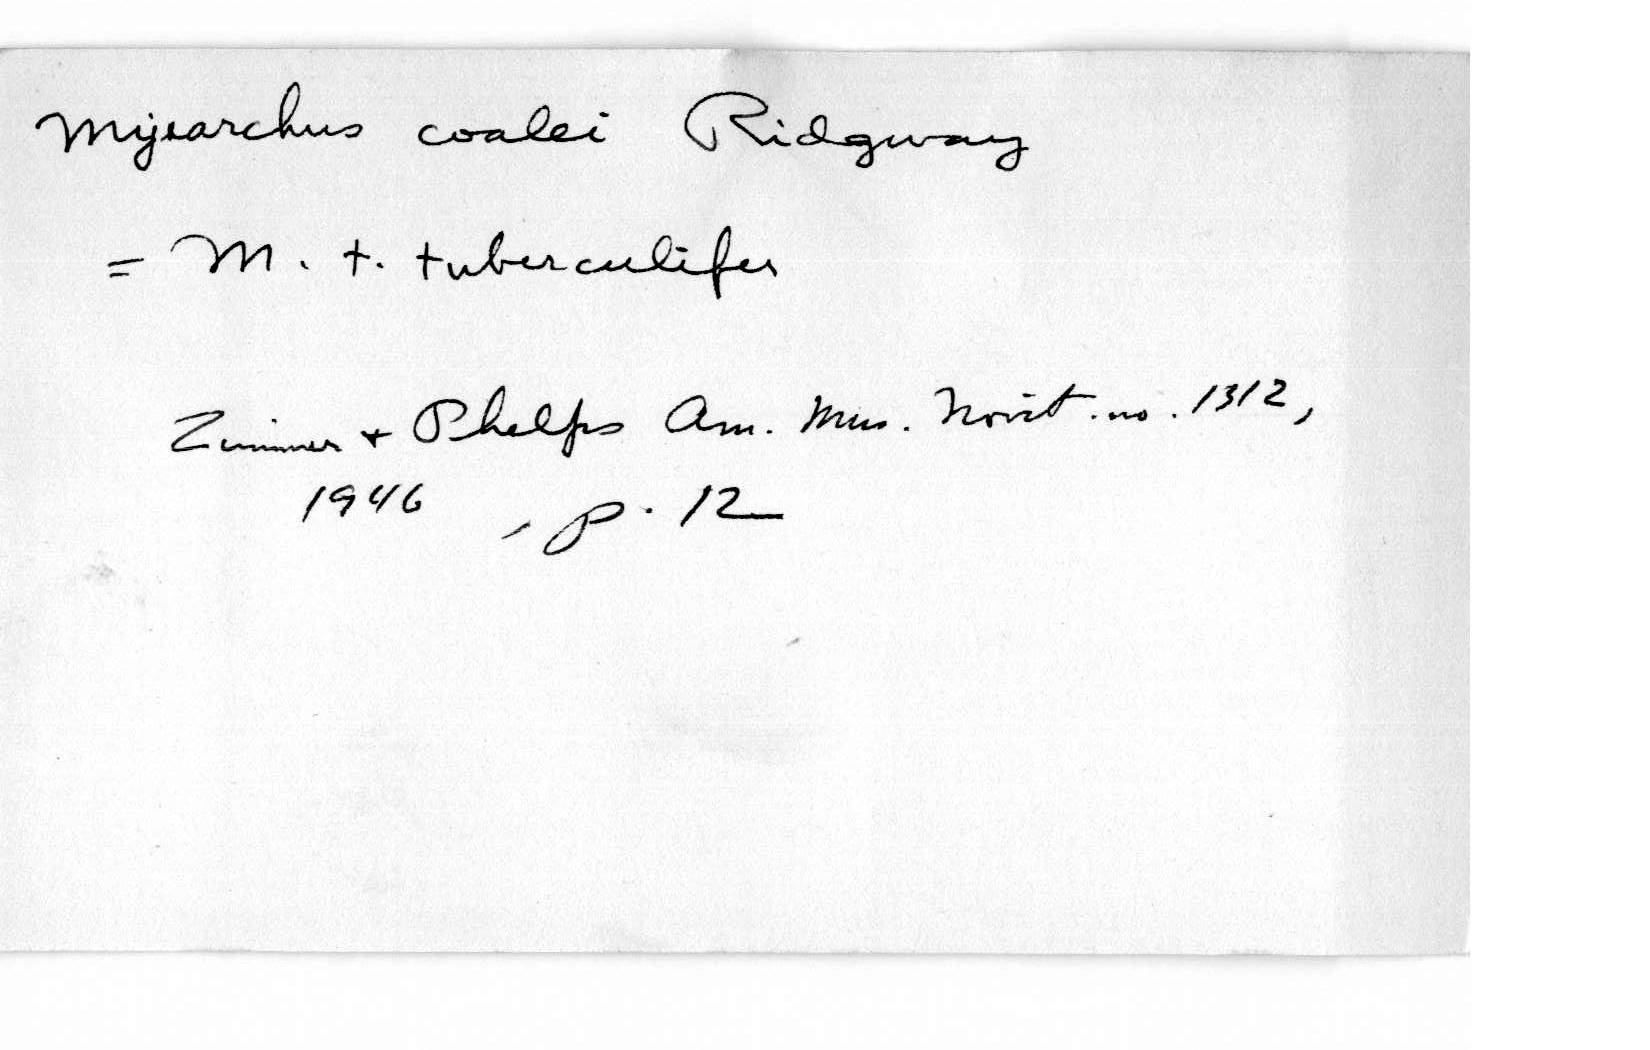 Myiarchus coalei Ridgway
= M. t. tuberculifer
Zimmer + Phelps Am. Mus. Novit. no. 1312,
1946, p. 12